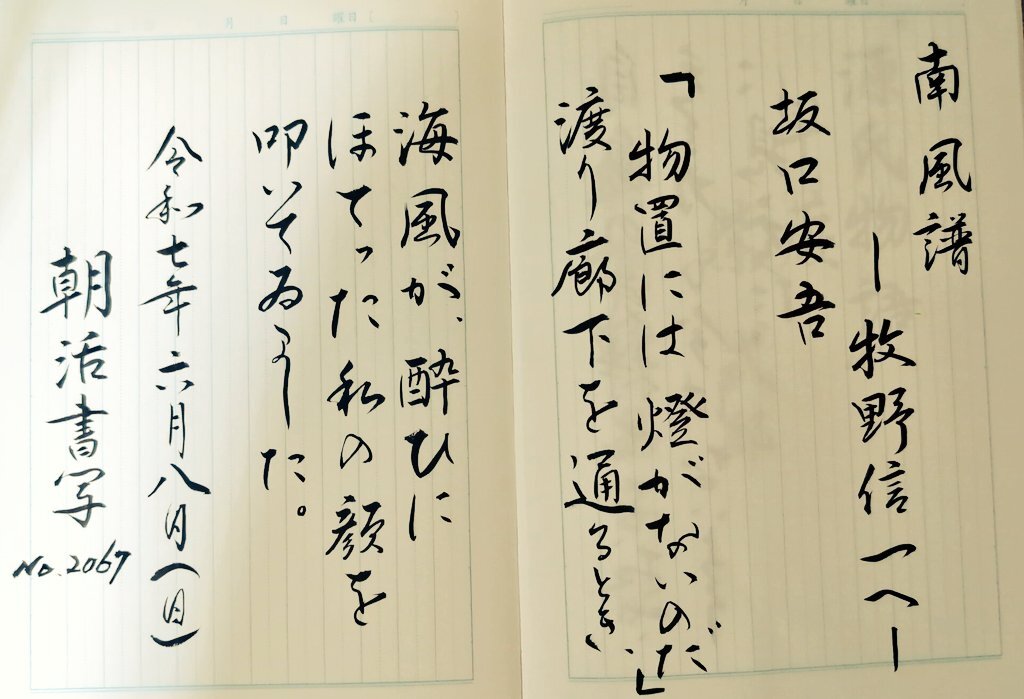 月 日 曜日[
南風譜
―牧野信一へ―
坂口安吾
「物置には燈がないのだ」
渡り廊下を通るとき、
月 日 曜日[
海風が、酔ひに
ほてった私の顔を
叩いてゐました。
令和七年六月八日(日)
朝活書写
No.2067